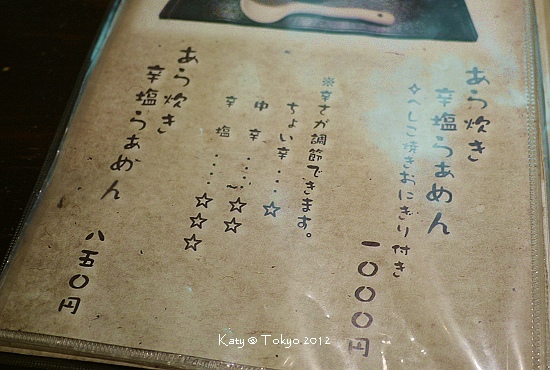 あら炊き
辛塩らぁめん
✧へしこ焼きおにぎり付き
一〇〇〇円
※辛さが調節できます。
ちょい辛…☆
中辛…〜☆☆
辛塩……☆☆☆
あら炊き
辛塩らぁめん
八五〇円
Katy @ Tokyo 2012